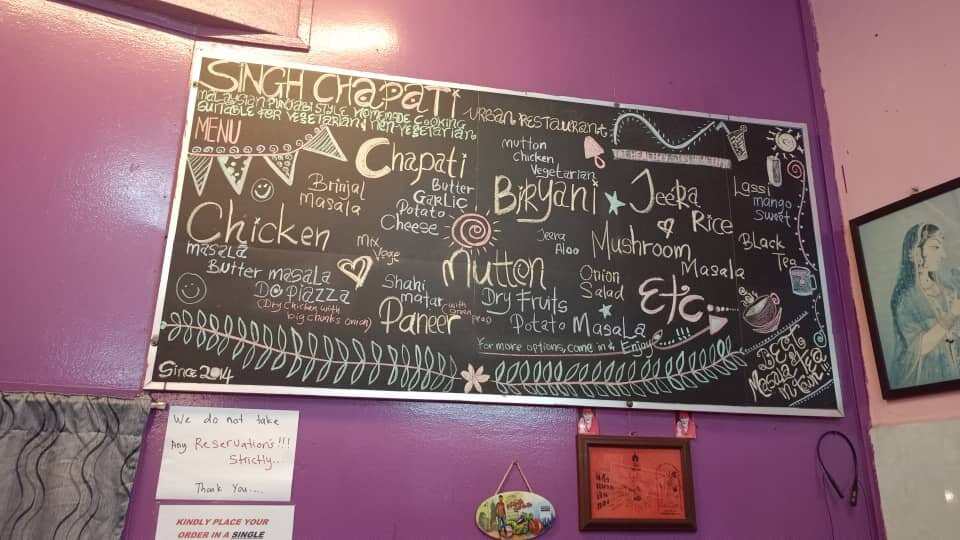 SINGH CHAPATI
URBAN RESTAURANT
MALAYSIAN PUNJABI STYLE HOMEMADE COOKING
SUITABLE FOR VEGETARIAN & NON-VEGETARIAN
MENU
Chapati
Butter
Garlic
Potato
Cheese
Brinjal
Masala
Mutton
Chicken
Vegetarian
Biryani
Jeera
Rice
Lassi
mango
sweet
Black
Tea
Chicken
masala
Butter masala
Dopiazza
(Dry chicken with
big chunks onion)
Mix
Vege
Jeera
Aloo
Mushroom
Masala
Mutton
Onion
Salad
Etc....
Shahi
matar
Paneer
Dry Fruits
Potato Masala
For more options, come in & Enjoy...!!!
Best
Masala Tea
in Town!!
Since 2014
We do not take
Any Reservation's!!!
Strictly...
Thank You....
KINDLY PLACE YOUR
ORDER IN A SINGLE